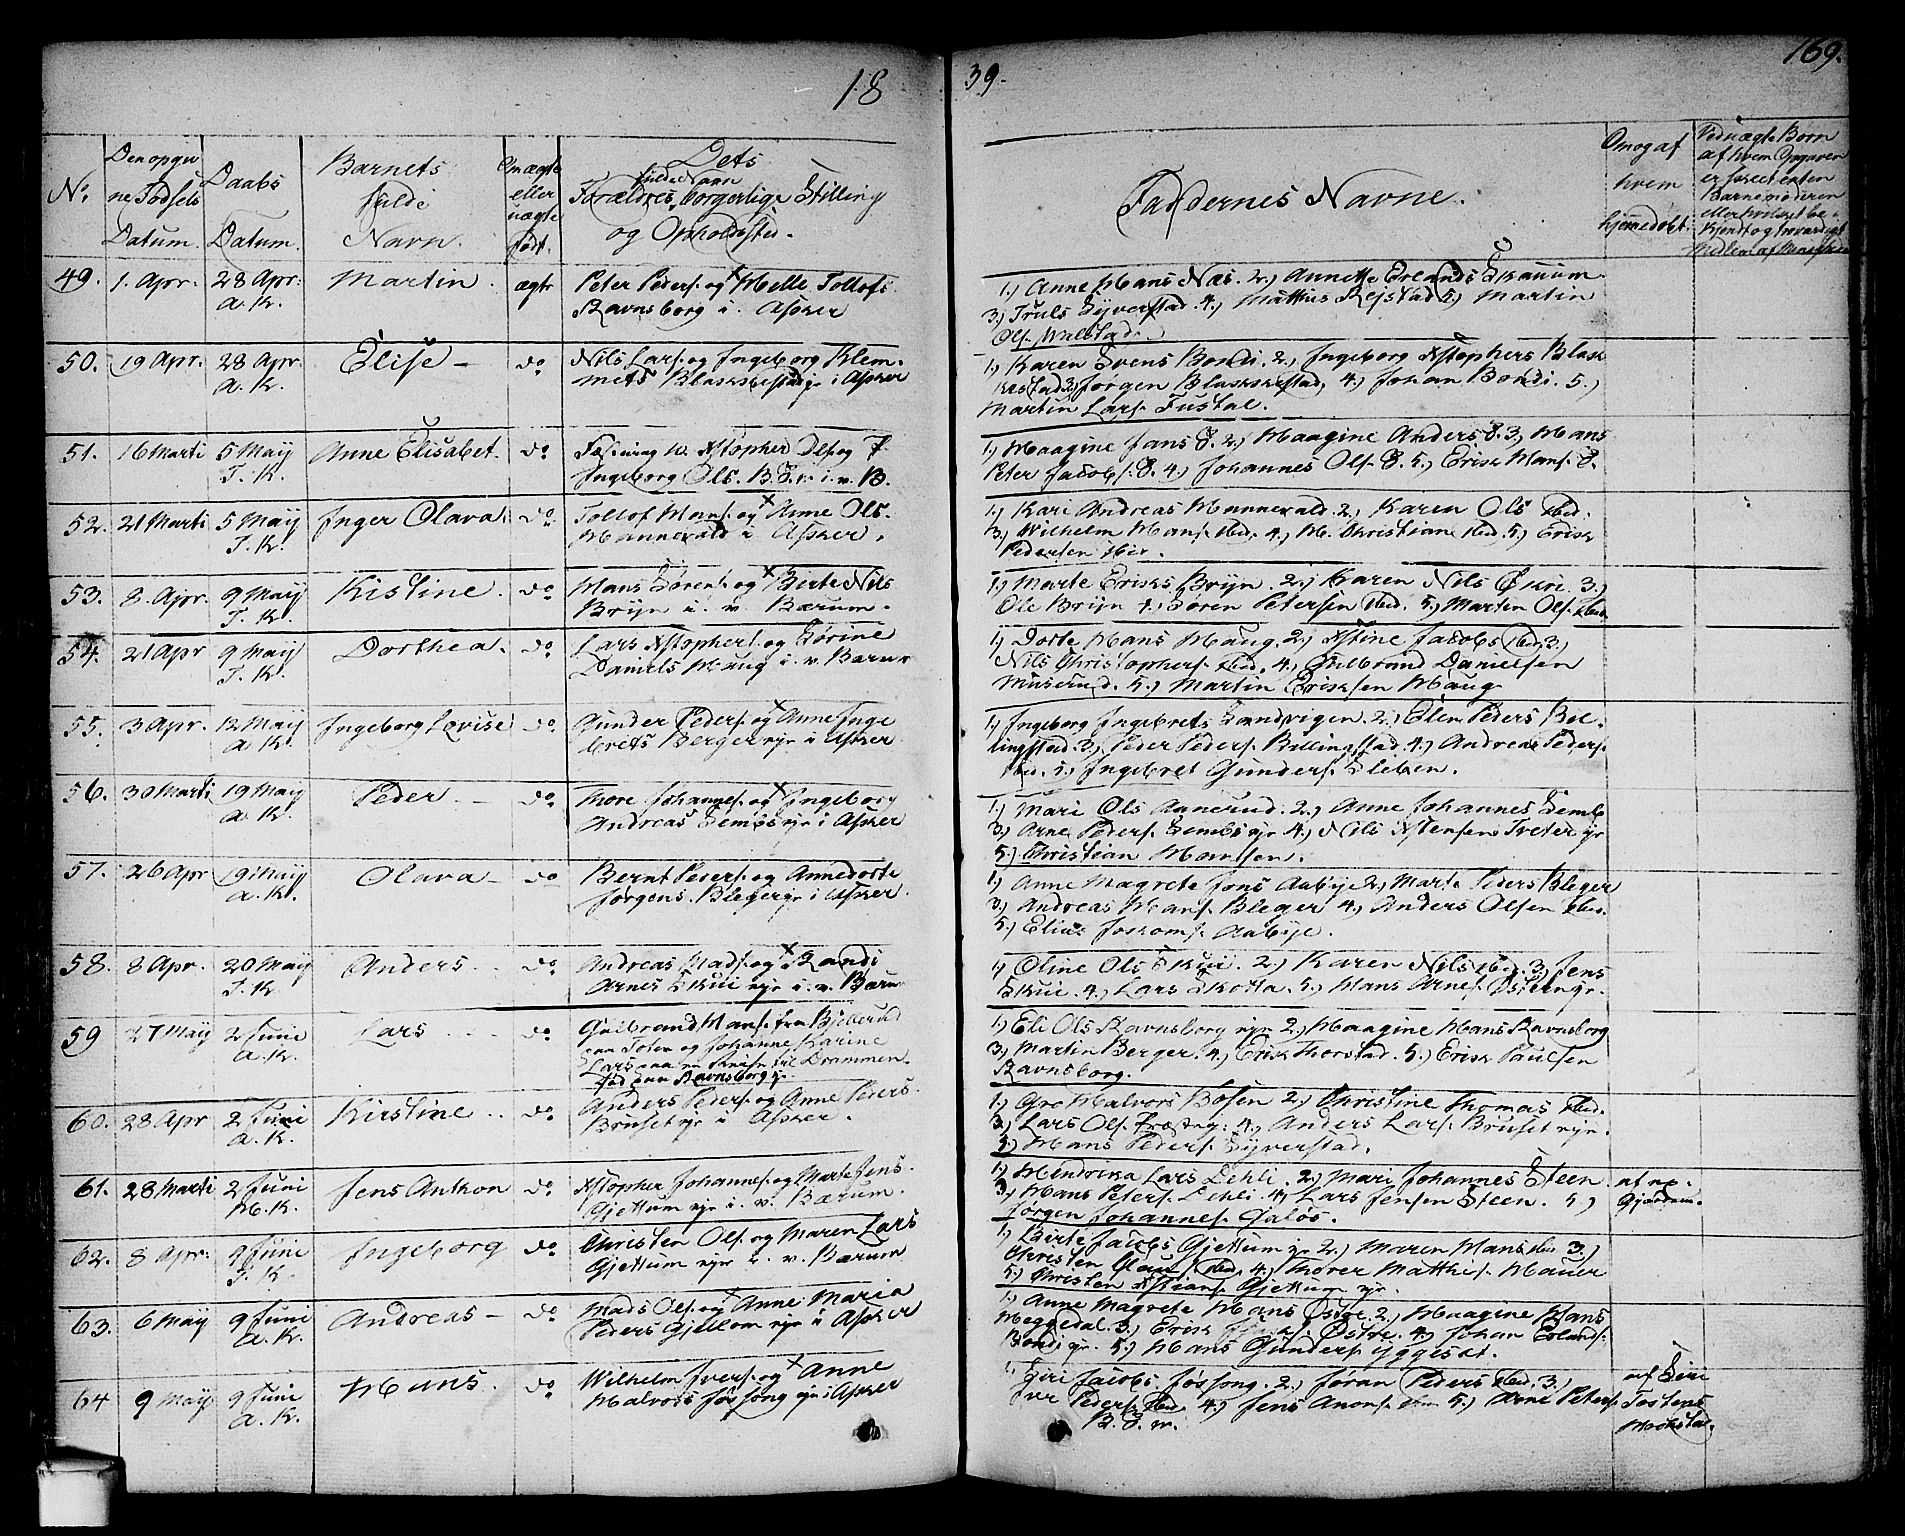 18
39.
169.
No.
Den opgivne Fødsels Datum.
Daabs Datum.
Barnets fulde Navn.
Om ægte eller uægte født.
Dets Forældres fulde Navn, borgerlige Stilling og Opholdsted.
Faddernes Navne.
Om og af hvem hjemmedøbt.
49. 1. Apr. 28 Apr. A. K. Martin. ægte
Peter Peders. og Helle Tollofs
Ravnsborg i Asker
1.) Anne Hans Næs. 2.) Annette Erlands Skauum.
3.) Truls Syverstad. 4.) Matthis Rejstad 5.) Martin
Ols. Walstad.
50. 19 Apr. 28 Apr. A. K. Elise – do
Nils Lars. og Ingeborg Klem-
mets Blakkestad gr i Asker
1.) Karen Svens Bondi. 2.) Ingeborg Xstophers Blak
kestad 3.) Jørgen Blakkestad, 4.) Johan Bondi. 5.)
Martin Lars. Fustal.
51. 16 Marti 5 May T. K. Anne Elisabet. do
Xstopher Ols. og
Ingeborg Ols. B. S. v. i. v. B.
1.) Maagine Jans S. 2.) Maagine Anders S. 3.) Hans
Peter Jacobs. S. 4.) Johannes Ols. S. 5.) Erik Hans. S.
52. 21 Marti 5 May T. K. Inger Olava. do
Tollof Hans. og Anne Ols.
Hannevald i Asker.
1.) Kari Andreas Hannevald. 2.) Karen Ols ibid.
3.) Wilhelm Hans. ibid. 4.) H. Christian ibid. 5.) Erik
Pedersen ibid.
53. 8. Apr. 9 May T. K. Kistine. do
Hans Sørens. og Birte Nils
Bryn i. v. Bærum.
1.) Marte Eriks Bryn. 2.) Karen Nils Økri. 3.)
Ole Bryn 4.) Søren Petersen ibid. 5.) Martin Ols. ibid.
54. 21 Apr 9 May T. K. Dorthea. do
Lars Xstophers. og Sørine
Daniels Haug i. v. Barum
1.) Dorte Hans Haug. 2.) Xstine Jacobs ibid. 3.)
Nils Christophers. ibid. 4.) Gulbrand Danielsen
Muserud. 5.) Martin Eriksen Haug
55. 3 Apr. 12 May A. K. Ingeborg Lovise do
Gunder Peders. og Anne Inge
brets Berger eje i Asker
1.) Ingeborg Ingebrets Sandvigen. 2.) Elen Peders Bil-
lingstad. 3.) Peder Peders. Billingstad. 4.) Andreas Peders.
ibid. 5.) Ingebret Gunders. Sleben.
56. 30 Marti 19 May A. K. Peder. – do
Thore Johannes. og Ingeborg
Andreas Sembs eje i Asker
1.) Mari Ols Aanerud. 2.) Anne Johannes Semb
3.) Arne Peders. Sembs eje 4.) Nils Xstensens Treter gr
5.) Christian Hansen.
57. 26 Apr 19 May A. K. Olava – do
Bernt Peders. og Annedorte
Jørgens. Bleger gr i Asker.
1.) Anne Magrete Jons Aabye 2.) Marte Peders Bleger
3.) Andreas Hans. Bleger 4.) Anders Olsen ibid.
5.) Elias Joskoms. Aabye.
58. 8 Apr. 20 May T. K. Anders. – do
Andreas Mads. og Randi
Arnes Skui eje i. v. Bærum
1.) Oline Ols Skui. 2.) Karen Nils ibid. 3.) Jens
Skui. 4.) Lars Skotta. 5.) Hans Arnes. Østern gr.
59 27 May 2 Juni A. K. Lars. do
Gulbrand Hans. fra Bjellerud
paa Toten og Johanne Karine
Lars paa en Reise til Drammen.
fød paa Ravnsborg gr.
1.) Eli Ols Ravnsborg eje 2.) Maagine Hans Ravnsborg
3.) Martin Berger. 4.) Erik Thorstad. 5.) Erik Paulsen
Ravnsborg.
60. 28 Apr 2 Juni A. K. Kirstine. do
Anders Peders. og Anne Peders.
Bruset eje i Asker.
1.) Gro Halvors Bosen 2.) Christine Thomas ibid.
3.) Lars Ols. 4.) Anders Lars. Bruset eje.
5.) Hans Peders. Syverstad.
61. 28 Marti 2 Juni H. K. Jens Anthon do
Xstopher Johannes. og Marte Jens.
Gjettum eje i. v. Bærum.
1.) Hendrika Lars Dehli. 2.) Mari Johannes Steen
3.) Hans Peters. Dehli. 4.) Lars Jensen Steen. 5.)
Jørgen Johannes. Valøs.
af
Gjordem.
62. 8 Apr. 9 Juni T. K. Ingeborg do
Christen Ols. og Maren Lars
Gjettum eje i. v. Bærum
1.) Birte Jacobs Gjettum gr 2.) Maren Hans ibid 3.)
Christen Claus ibid. 4.) Thorer Matthis. Hauer
5.) Christen Xstians. Gjettum eje.
63. 6 May 9 Juni A. K. Andreas – do
Mads Ols. og Anne Maria
Peders Gjellom eje i Asker
1.) Anne Magrete Hans Østre. 2.) Maagine Hans
Heggedal. 3.) Erik Østre. 4.) Johan Erlands.
Bondi gr. 5.) Hans Gunders. Yggeset.
64 9 May 9 Juni A. K. Hans. do
Wilhelm Ivers. og Anne
Halvors Jøssong gr i Asker
1.) Siri Jacobs Jøssong. 2.) Jøran Peders ibid. 3.)
Iver Peders. ibid. 4.) Jens Anons. ibid 5.) Arne Peters.
B. S. v.
af Siri
Tostens
Hokstad.